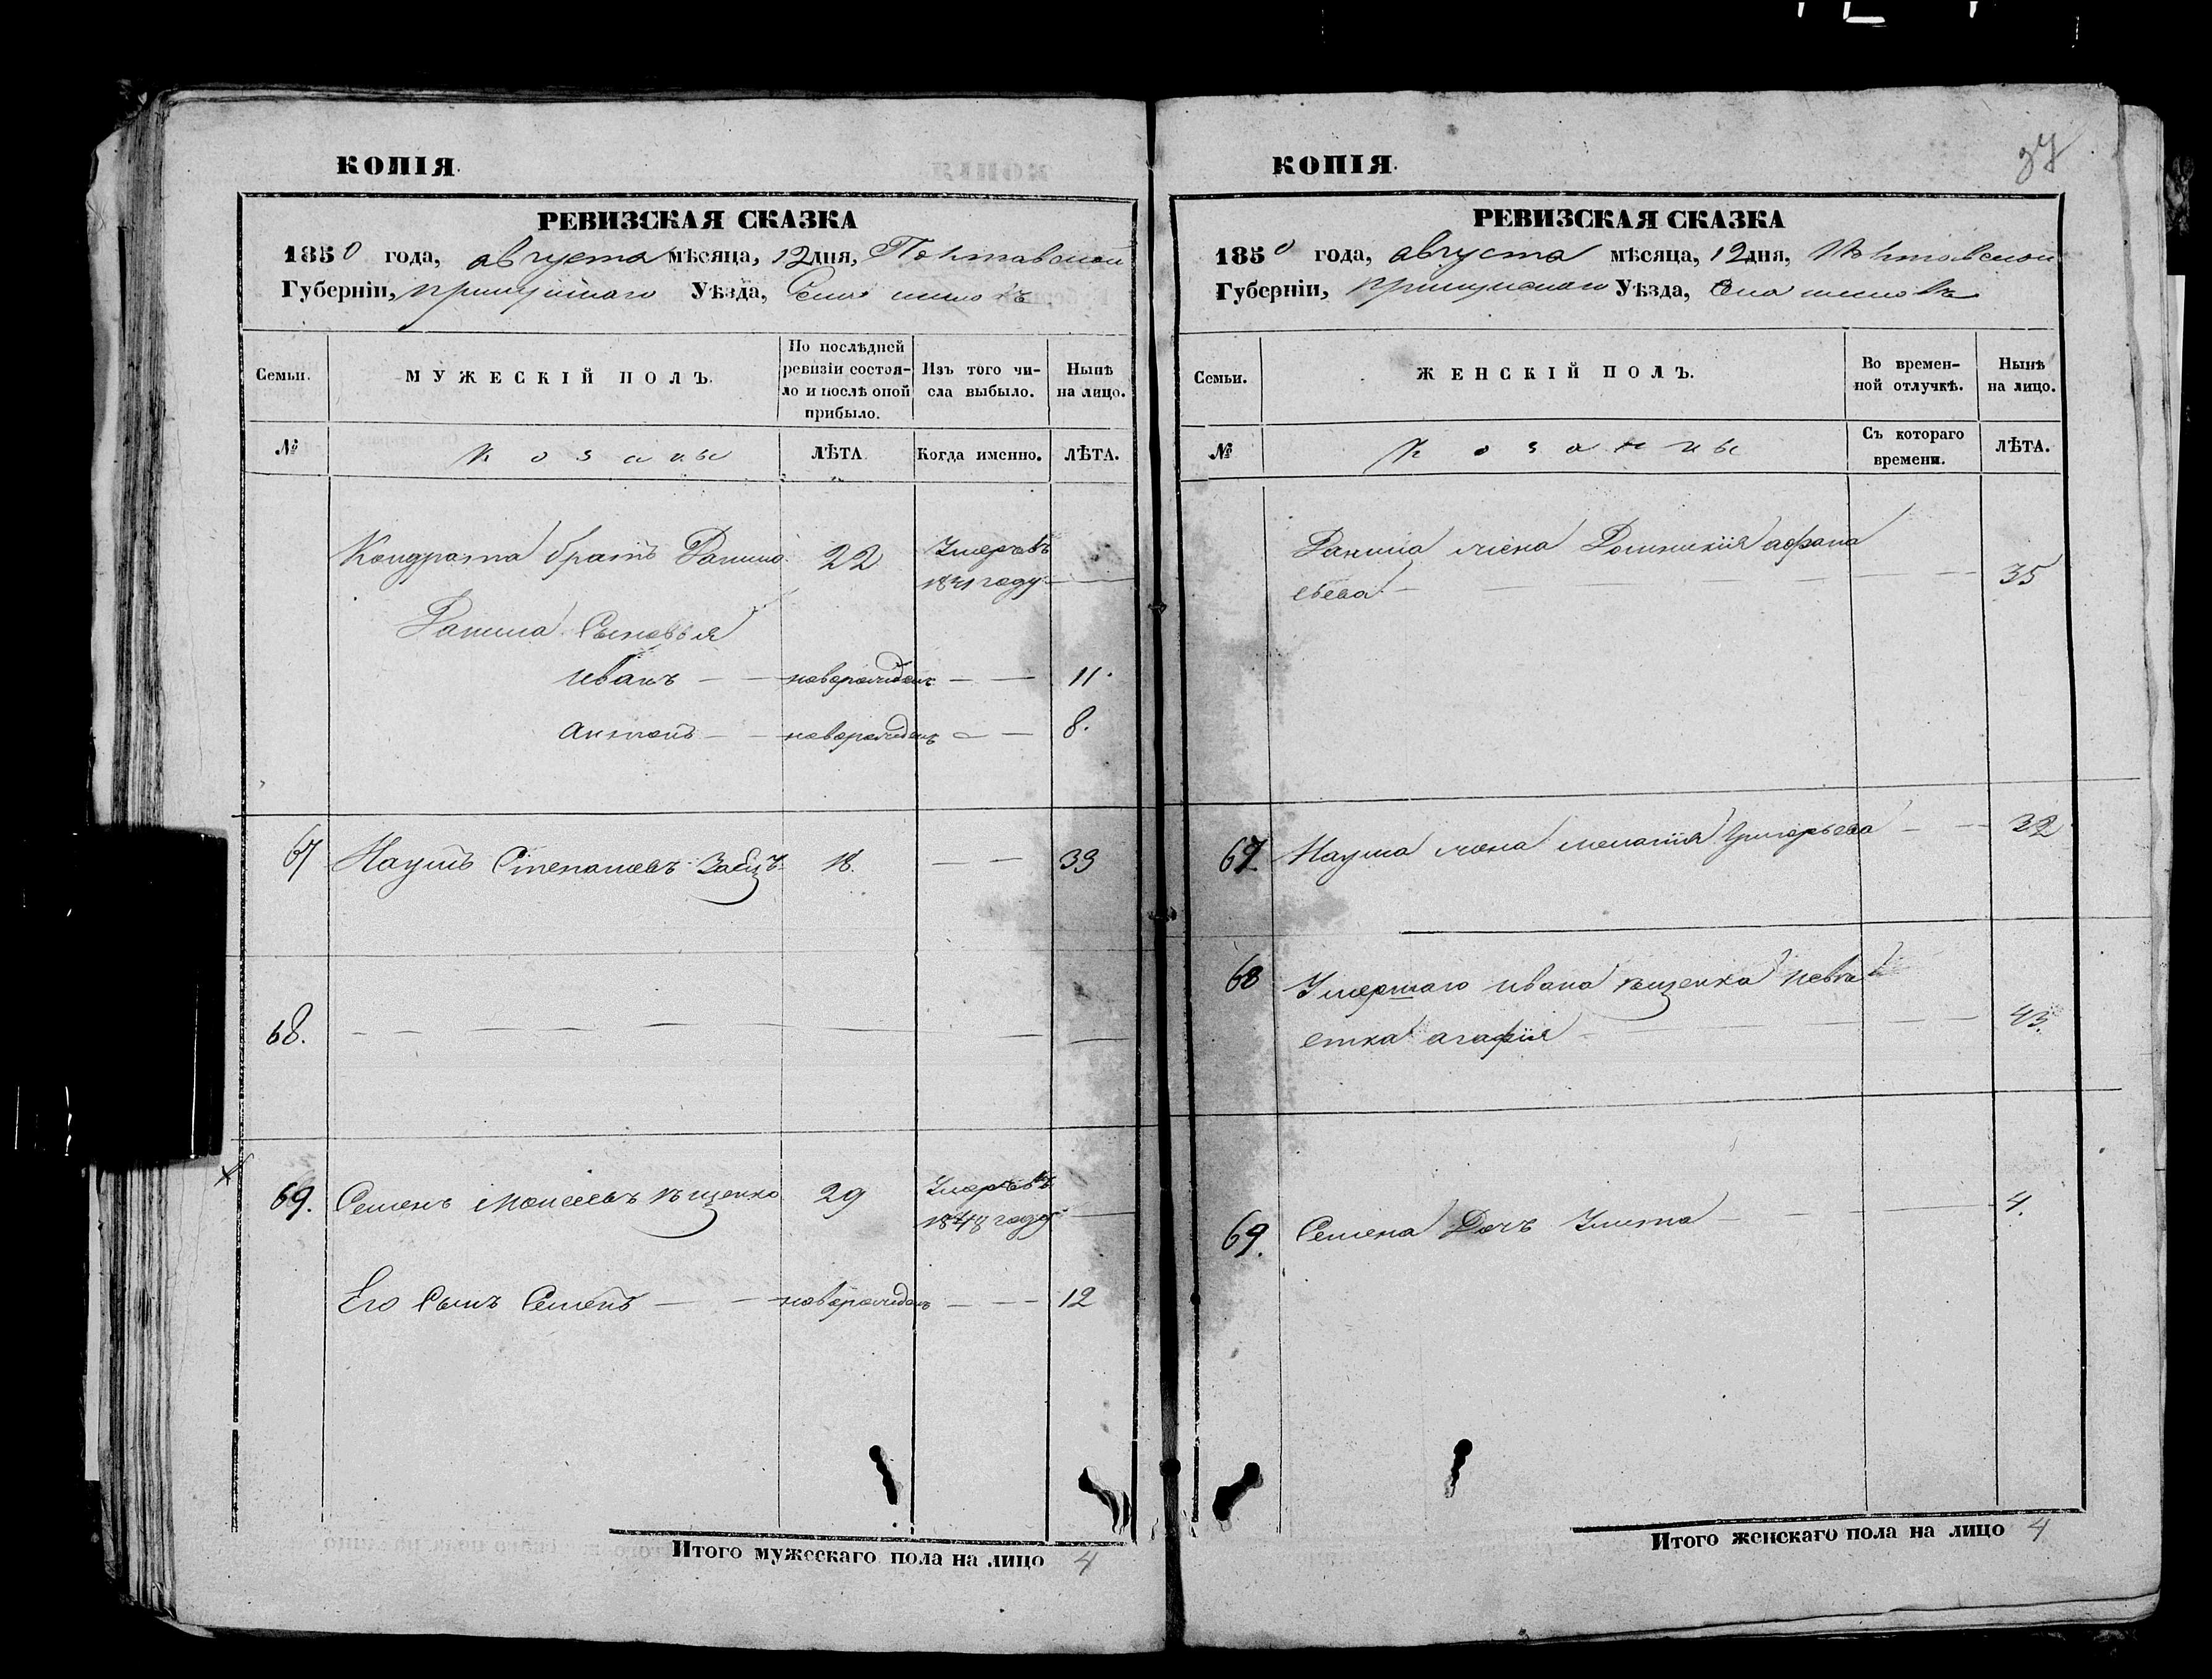 КОПІЯ.
РЕВИЗСКАЯ СКАЗКА
1850 года, августа мѣсяца, 12 дня, Полтавской
Губерніи, Прилуцкаго Уѣзда, Села
Семьи.
МУЖЕСКІЙ ПОЛЪ.
По послѣдней
ревизіи состоя-
ло и послѣ оной
прибыло.
Изъ того чи-
сла выбыло.
Нынѣ
на лицо.
№
Козаки
ЛѢТА
Когда именно.
ЛѢТА.
Кондрата братъ Данило 22 Умеръ въ
1841 году —
Данила Сыновья
Иванъ — — новорожденъ — — 11.
Антонъ — — новорожденъ — — 8.
67 Наумъ Степановъ Заецъ 18. — — 39
68. — — — — — — — — —
69. Семенъ Моисеевъ 29 Умеръ въ
1848 году —
Его Сынъ Семенъ — — новорожденъ — — 12
Итого мужескаго пола на лицо 4
КОПІЯ.
37
РЕВИЗСКАЯ СКАЗКА
1850 года, августа мѣсяца, 12 дня, Полтавской
Губерніи, Прилуцкаго Уѣзда, Села
Семьи.
ЖЕНСКІЙ ПОЛЪ.
Во времен-
ной отлучкѣ.
Нынѣ
на лицо.
№
Козачки
Съ котораго
времени.
ЛѢТА.
Данила жена Домникія афана
сьева — — — — — 35
67. Наума жена меланія Григорьева — — 32
68 Умершаго ивана невѣ
стка агафія — — — — 43.
69. Семена Дочь Улита — — — — 4.
Итого женскаго пола на лицо 4